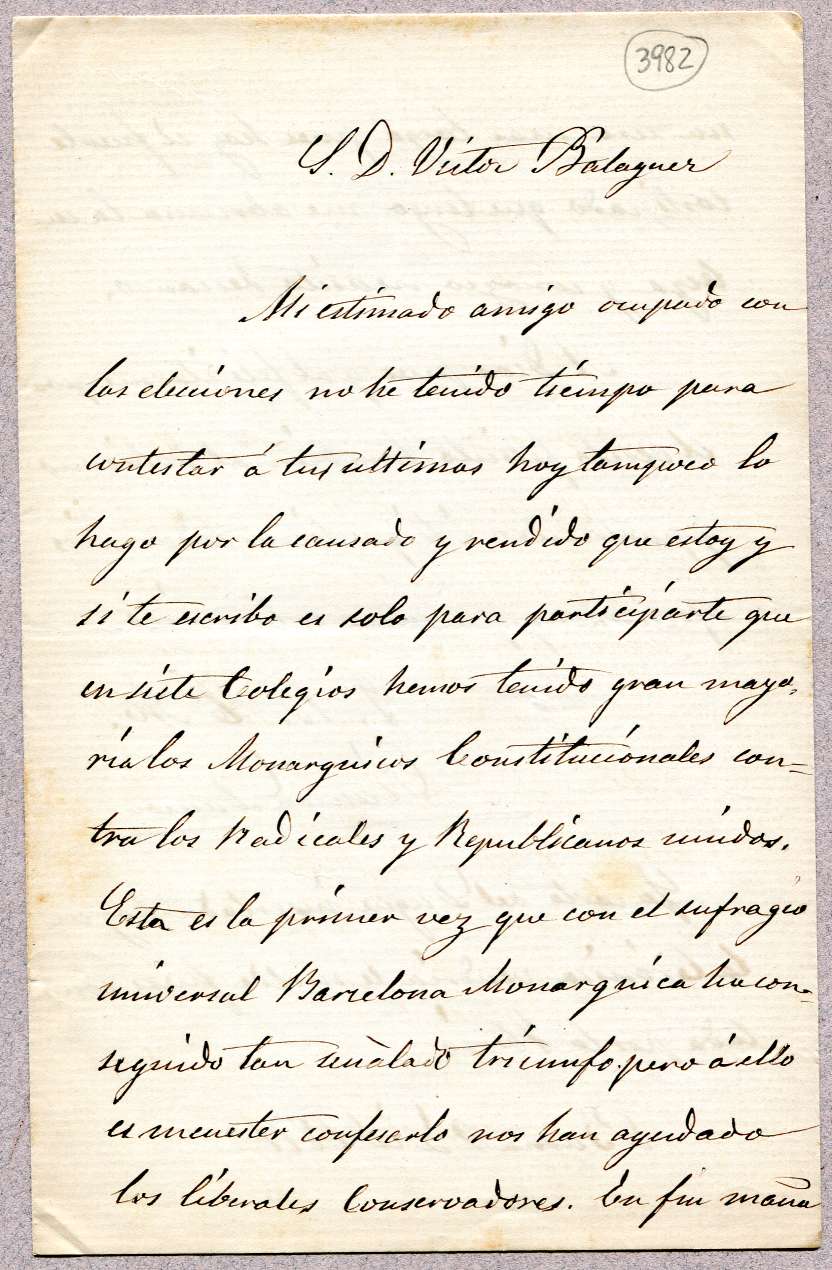 3982
S. D. Victor Balaguer
Mi estimado amigo ocupado con
las elecciones no he tenido tiempo para
contestar á tus ultimas hoy tampoco lo
hago por lo causado y rendido que estoy y
si te escribo es solo para participarte que
en siete Colegios hemos tenido gran mayo-
ría los Monarquicos Constitucionales con-
tra los Radicales y Republicanos unidos.
Esta es la primer vez que con el sufragio
universal Barcelona Monarquica ha con-
seguido tan señalado triunfo pero á ello
es menester confesarlo nos han ayudado
los liberales Conservadores. En fin maña